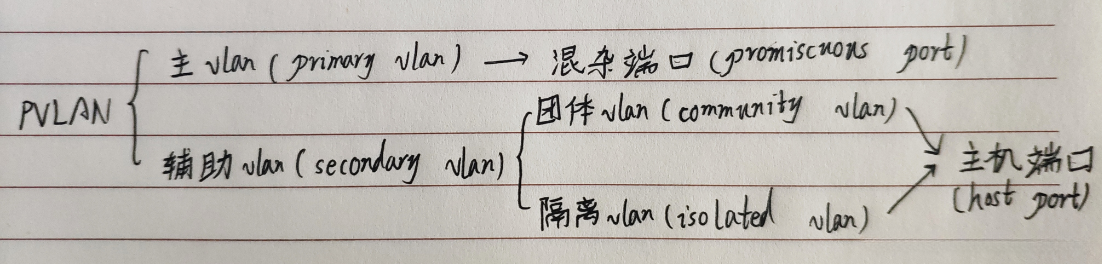 主 vlan (primary vlan) → 混杂端口 (promiscuous port)
PVLAN
团体 vlan (community vlan)
辅助 vlan (secondary vlan)
主机端口
(host port)
隔离 vlan (isolated vlan)